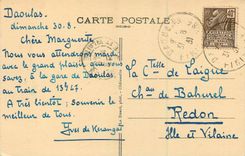 CARTE POSTALE
Daoulas.
dimanche 30.8.
Chère Marguerite
Nous vous attendrons mardi
avec le grand plaisir que vous
savez, à la gare de Daoulas,
au train de 13h27.
A très bientôt; souvenir le
meilleur de Tous.
Yves de Kerangal
La Ctesse de
Chau de Bahurel
Redon
Ille et Vilaine